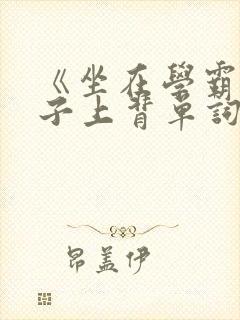 《坐在學霸
子上背單詞
昂蓋伊